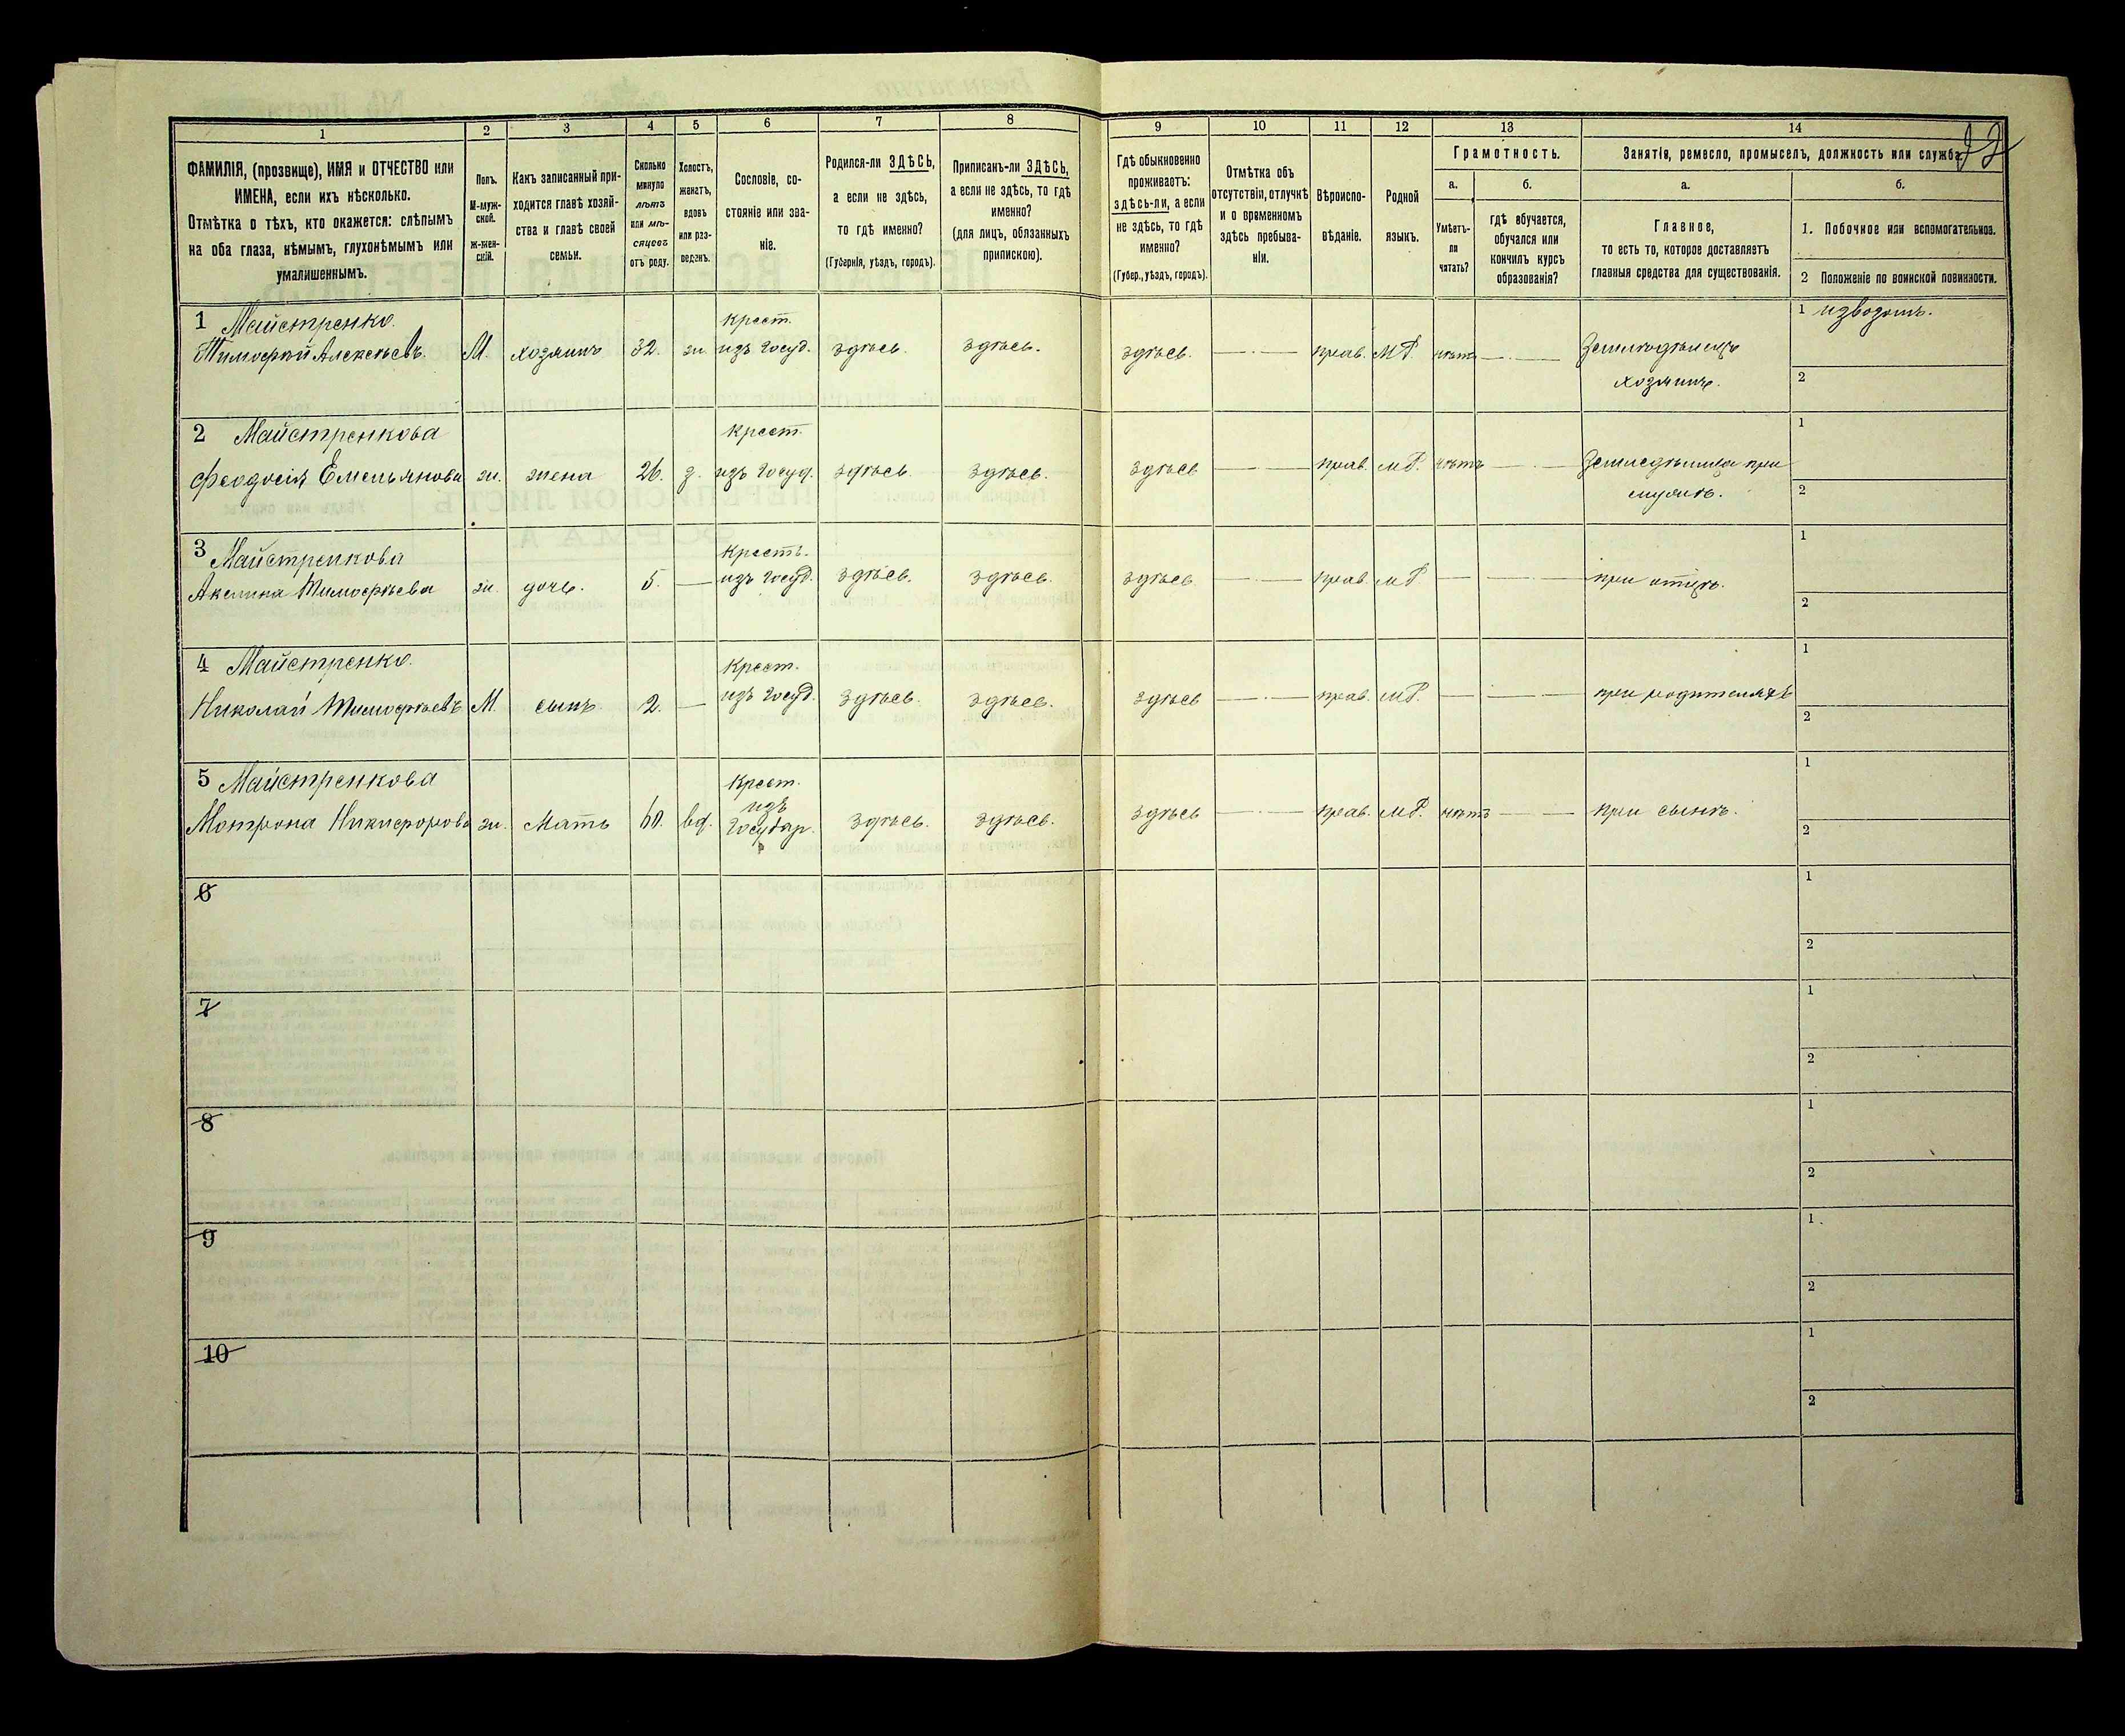 1
2
3
4
5
6
7
8
9
10
11
12
13
14
22
ФАМИЛІЯ, (прозвище), ИМЯ и ОТЧЕСТВО или
ИМЕНА, если ихъ нѣсколько.
Отмѣтка о тѣхъ, кто окажется: слѣпымъ
на оба глаза, нѣмымъ, глухонѣмымъ или
умалишеннымъ.
Полъ.
М-муж-
ской.
ж-жен-
скій.
Какъ записанный при-
ходится главѣ хозяй-
ства и главѣ своей
семьи.
Сколько
минуло
лѣтъ
или мѣ-
сяцевъ
отъ роду.
Холостъ,
женатъ,
вдовъ
или раз-
веденъ.
Сословіе, со-
стояніе или зва-
ніе.
Родился-ли ЗДѢСЬ,
а если не здѣсь,
то гдѣ именно?
(Губернія, уѣздъ, городъ).
Приписанъ-ли ЗДѢСЬ,
а если не здѣсь, то гдѣ
именно?
(для лицъ, обязанныхъ
припискою).
Гдѣ обыкновенно
проживаетъ:
здѣсь-ли, а если
не здѣсь, то гдѣ
именно?
(Губер., уѣздъ, городъ).
Отмѣтка объ
отсутствіи, отлучкѣ
и о временномъ
здѣсь пребыва-
ніи.
Вѣроиспо-
вѣданіе.
Родной
языкъ.
Грамотность.
а.
Умѣетъ-
ли
читать?
б.
гдѣ обучается,
обучался или
кончилъ курсъ
образованія?
Занятіе, ремесло, промыселъ, должность или служба.
а.
Главное,
то есть то, которое доставляетъ
главныя средства для существованія.
б.
1. Побочное или вспомогательное.
2 Положеніе по воинской повинности.
1 Майстренко.
Тимофѣй Алексѣевъ. М. хозяинъ 32. ж. Крест.
изъ Госуд. здѣсь. здѣсь. здѣсь. прав. МР. нѣтъ Земледѣлецъ
хозяинъ.
1 извозомъ.
2
2 Майстренкова
Феодосія Емельянова ж. жена 26. з. Крест.
изъ Госуд. здѣсь. здѣсь. здѣсь прав. МР. нѣтъ Земледѣлица при
мужѣ.
1
2
3 Майстренкова
Акелина Тимофѣева ж. дочь. 5. Кресть.
изъ Госуд. здѣсь. здѣсь. здѣсь прав. МР при отцѣ.
1
2
4 Майстренко.
Николай Тимофѣевъ М. сынъ 2. Крест.
изъ Госуд. здѣсь. здѣсь. здѣсь прав. МР. при родителяхъ
1
2
5 Майстренкова
Мотрона Никифорова ж. Мать 60. вд. Крест.
изъ
Государ. здѣсь. здѣсь. здѣсь прав. МР. нѣтъ при сынѣ.
1
2
6
1
2
7
1
2
8
1
2
9
1
2
10
1
2